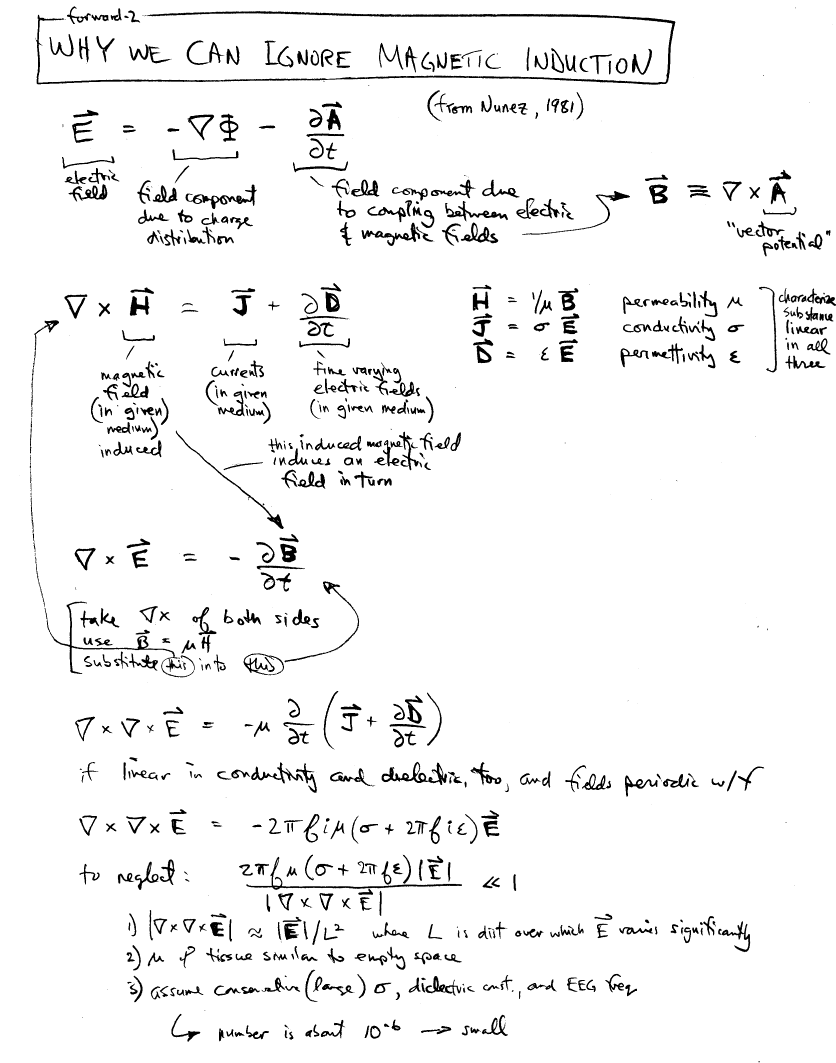 forward-2
WHY WE CAN IGNORE MAGNETIC INDUCTION
(from Nunez, 1981)
E⃗ = -∇Φ - ∂A⃗/∂t
electric field
field component due to charge distribution
field component due to coupling between electric & magnetic fields
B⃗ ≡ ∇ × A⃗
"vector potential"
∇ × H⃗ = J⃗ + ∂D⃗/∂t
magnetic field (in given medium) induced
currents (in given medium)
time varying electric fields (in given medium)
H⃗ = 1/μ B⃗ permeability μ
J⃗ = σ E⃗ conductivity σ
D⃗ = ε E⃗ permettivity ε
characterize substance linear in all three
this induced magnetic field
induces an electric
field in turn
∇ × E⃗ = - ∂B⃗/∂t
take ∇× of both sides
use B⃗ = μH⃗
substitute this into this
∇ × ∇ × E⃗ = -μ ∂/∂t (J⃗ + ∂D⃗/∂t)
if linear in conductivity and dielectric, too, and fields periodic w/f
∇ × ∇ × E⃗ = -2πfiμ(σ + 2πfiε)E⃗
to neglect: 2πfμ(σ + 2πfε)|E⃗| / |∇ × ∇ × E⃗| ≪ 1
1) |∇×∇×E⃗| ≈ |E⃗|/L² where L is dist over which E⃗ varies significantly
2) μ of tissue similar to empty space
3) assume conservative (large) σ, dielectric const., and EEG freq
↳ number is about 10⁻⁶ → small